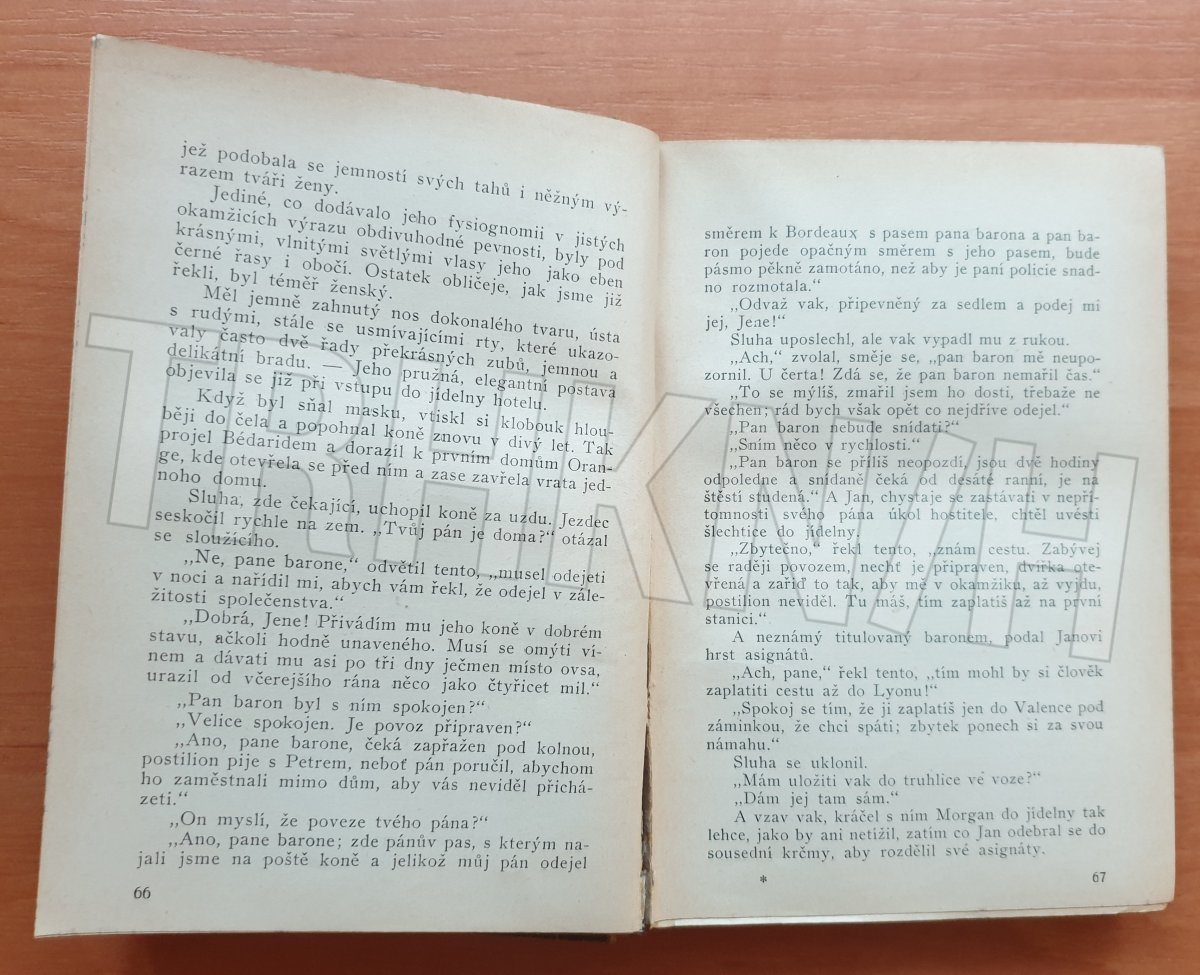 jež podobala se jemností svých tahů i něžným vý-
razem tváři ženy.
Jediné, co dodávalo jeho fysiognomii v jistých
okamžicích výrazu obdivuhodné pevnosti, byly pod
krásnými, vlnitými světlými vlasy jeho jako eben
černé řasy i obočí. Ostatek obličeje, jak jsme již
řekli, byl téměř ženský.
Měl jemně zahnutý nos dokonalého tvaru, ústa
s rudými, stále se usmívajícími rty, které ukazo-
valy často dvě řady překrásných zubů, jemnou a
delikátní bradu. — Jeho pružná, elegantní postava
objevila se již při vstupu do jídelny hotelu.
Když byl sňal masku, vtiskl si klobouk hlou-
běji do čela a popohnal koně znovu v divý let. Tak
projel Bédaridem a dorazil k prvním domům Oran-
ge, kde otevřela se před ním a zase zavřela vrata jed-
noho domu.
Sluha, zde čekající, uchopil koně za uzdu. Jezdec
seskočil rychle na zem. „Tvůj pán je doma?“ otázal
se sloužícího.
„Ne, pane barone,“ odvětil tento, „musel odejeti
v noci a nařídil mi, abych vám řekl, že odejel v zále-
žitosti společenstva.“
„Dobrá, Jene! Přivádím mu jeho koně v dobrém
stavu, ačkoli hodně unaveného. Musí se omýti ví-
nem a dávati mu asi po tři dny ječmen místo ovsa,
urazil od včerejšího rána něco jako čtyřicet mil.“
„Pan baron byl s ním spokojen?“
„Velice spokojen. Je povoz připraven?“
„Ano, pane barone, čeká zapřažen pod kolnou,
postilion pije s Petrem, neboť pán poručil, abychom
ho zaměstnali mimo dům, aby vás neviděl přichá-
zeti.“
„On myslí, že poveze tvého pána?“
„Ano, pane barone; zde pánův pas, s kterým na-
jali jsme na poště koně a jelikož můj pán odejel
66
směrem k Bordeaux s pasem pana barona a pan ba-
ron pojede opačným směrem s jeho pasem, bude
pásmo pěkně zamotáno, než aby je paní policie snad-
no rozmotala.“
„Odvaž vak, připevněný za sedlem a podej mi
jej, Jene!“
Sluha uposlechl, ale vak vypadl mu z rukou.
„Ach,“ zvolal, směje se, „pan baron mě neupo-
zornil. U čerta! Zdá se, že pan baron nemařil čas.“
„To se mýlíš, zmařil jsem ho dosti, třebaže ne
všechen; rád bych však opět co nejdříve odejel.“
„Pan baron nebude snídati?“
„Sním něco v rychlosti.“
„Pan baron se příliš neopozdí, jsou dvě hodiny
odpoledne a snídaně čeká od desáté ranní, je na
štěstí studená.“ A Jan, chystaje se zastávati v nepří-
tomnosti svého pána úkol hostitele, chtěl uvésti
šlechtice do jídelny.
„Zbytečno,“ řekl tento, „znám cestu. Zabývej
se raději povozem, nechť je připraven, dvířka ote-
vřená a zařiď to tak, aby mě v okamžiku, až vyjdu,
postilion neviděl. Tu máš, tím zaplatíš až na první
stanici.“
A neznámý titulovaný baronem, podal Janovi
hrst asignátů.
„Ach, pane,“ řekl tento, „tím mohl by si člověk
zaplatiti cestu až do Lyonu!“
„Spokoj se tím, že ji zaplatíš jen do Valence pod
záminkou, že chci spáti; zbytek ponech si za svou
námahu.“
Sluha se uklonil.
„Mám uložiti vak do truhlice ve voze?“
„Dám jej tam sám.“
A vzav vak, kráčel s ním Morgan do jídelny tak
lehce, jako by ani netížil, zatím co Jan odebral se do
sousední krčmy, aby rozdělil své asignáty.
*
67
TRHKNIH